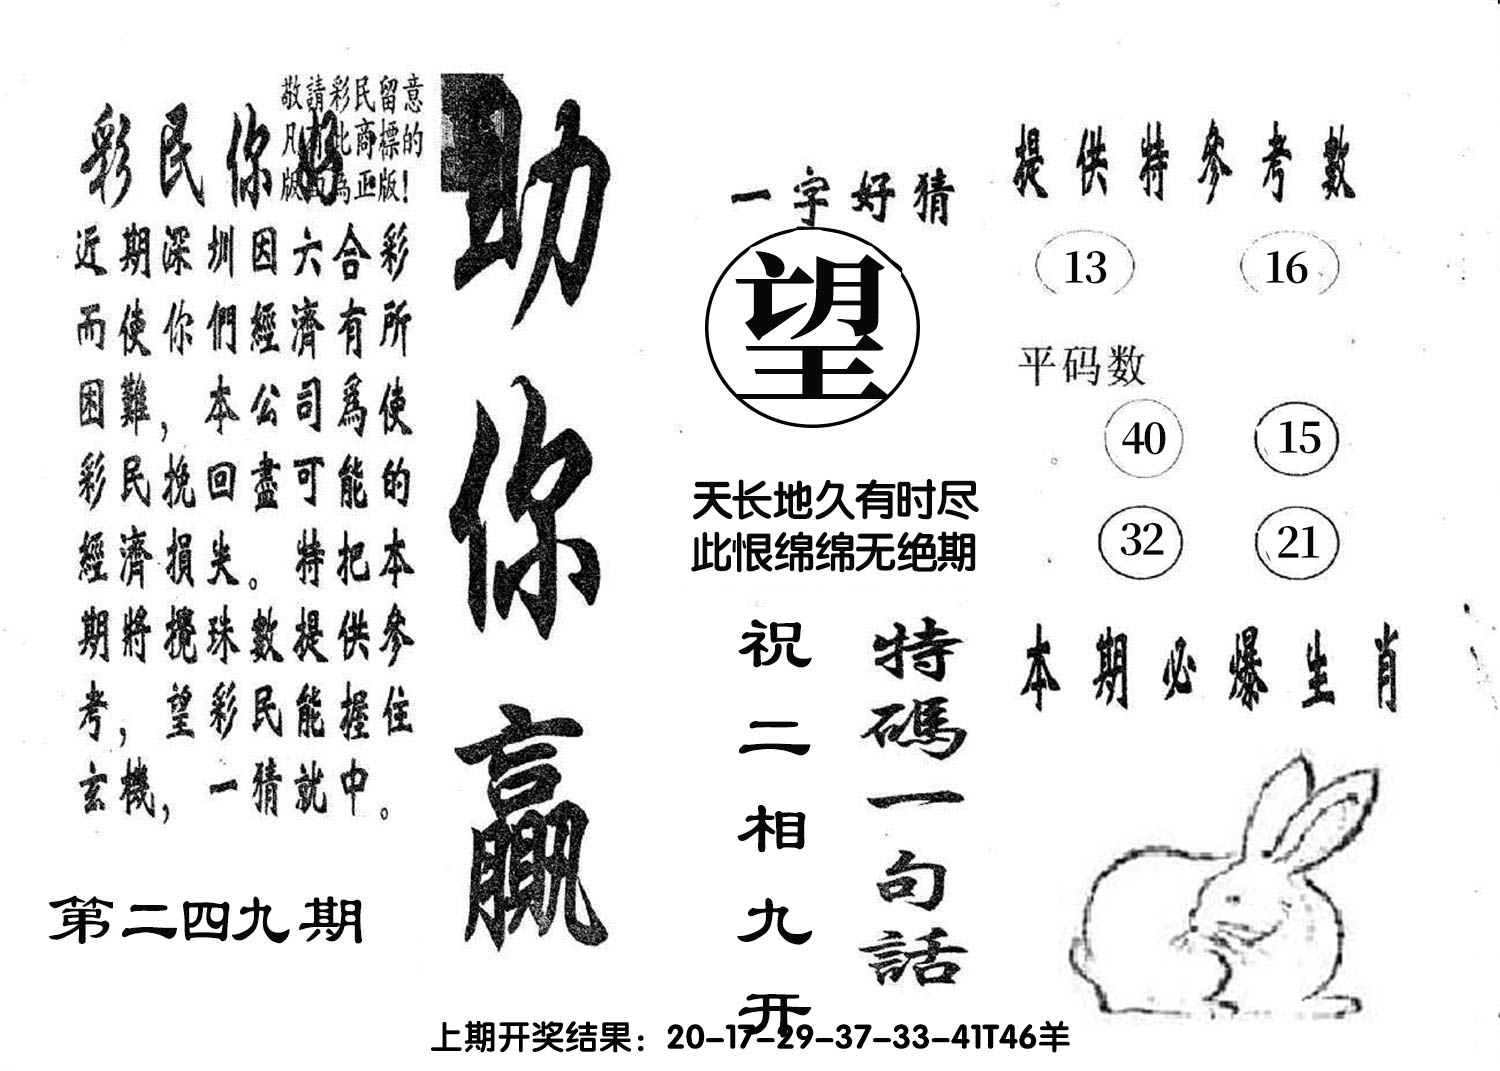 敬請彩民留意
凡有此商標的
版面為正版！
彩民你好
近期深圳因六合彩
而使你們經濟有所
困難，本公司爲使
彩民挽回盡可能的
經濟損失。特把本
期將攪珠數提供參
考，望彩民能握住
玄機，一猜就中。
第二四九期
助你贏
一字好猜
望
天长地久有时尽
此恨绵绵无绝期
特碼一句話
祝二相九开
提供特參考數
13 16
平码数
40 15
32 21
本期必爆生肖
上期开奖结果：20-17-29-37-33-41T46羊